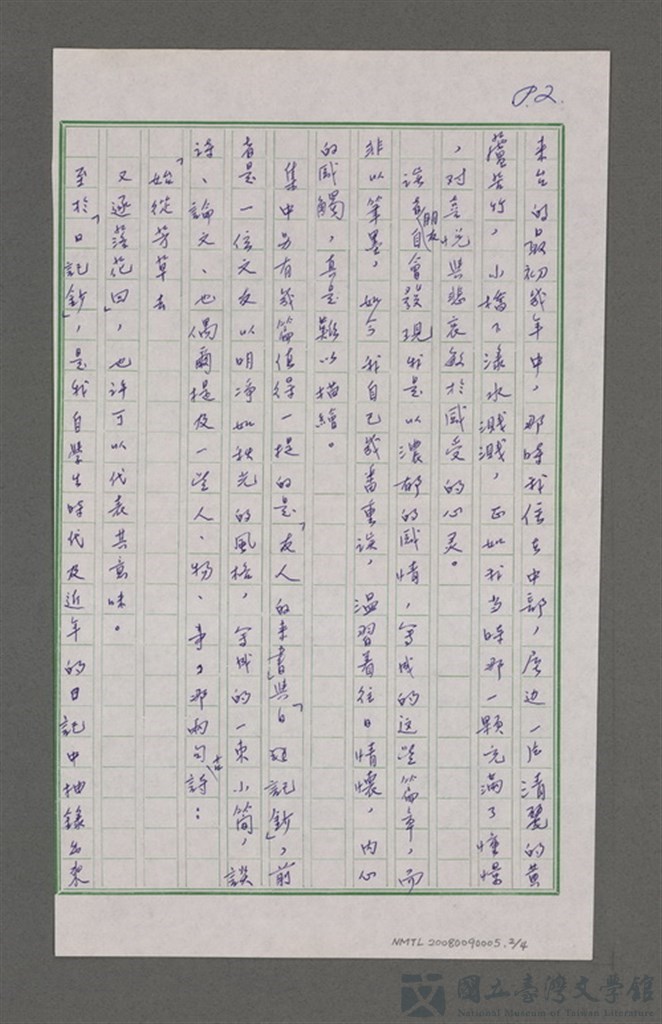 P.2.
來台的最初幾年中，那時我住在中部，居边一片清麗的黃
蘆苦竹，小橋下淥水溅溅，正如我当時那一顆充滿了憧憬
，对喜悅與悲哀敏於感受的心灵。
讀者朋友自會發現我是以濃郁的感情，寫成的这些篇章，而
非以筆墨，如今我自己幾番重讀，溫習着往日情懷，內心
的感觸，真是難以描繪。
集中另有幾篇值得一提的是「友人的來書」與「日記鈔」，前
者是一位文友以明净如秋光的風格，寫成的一束小簡，談
詩、論文、也偶爾提及一些人、物、事，那兩句古詩：
「始從芳草去
又逐落花回」，也许可以代表其意味。
至於「日記鈔」，是我自學生時代及近年的日記中抽錄出來
NMTL 20080090005. 2/4
國立臺灣文學館
National Museum of Taiwan Literature